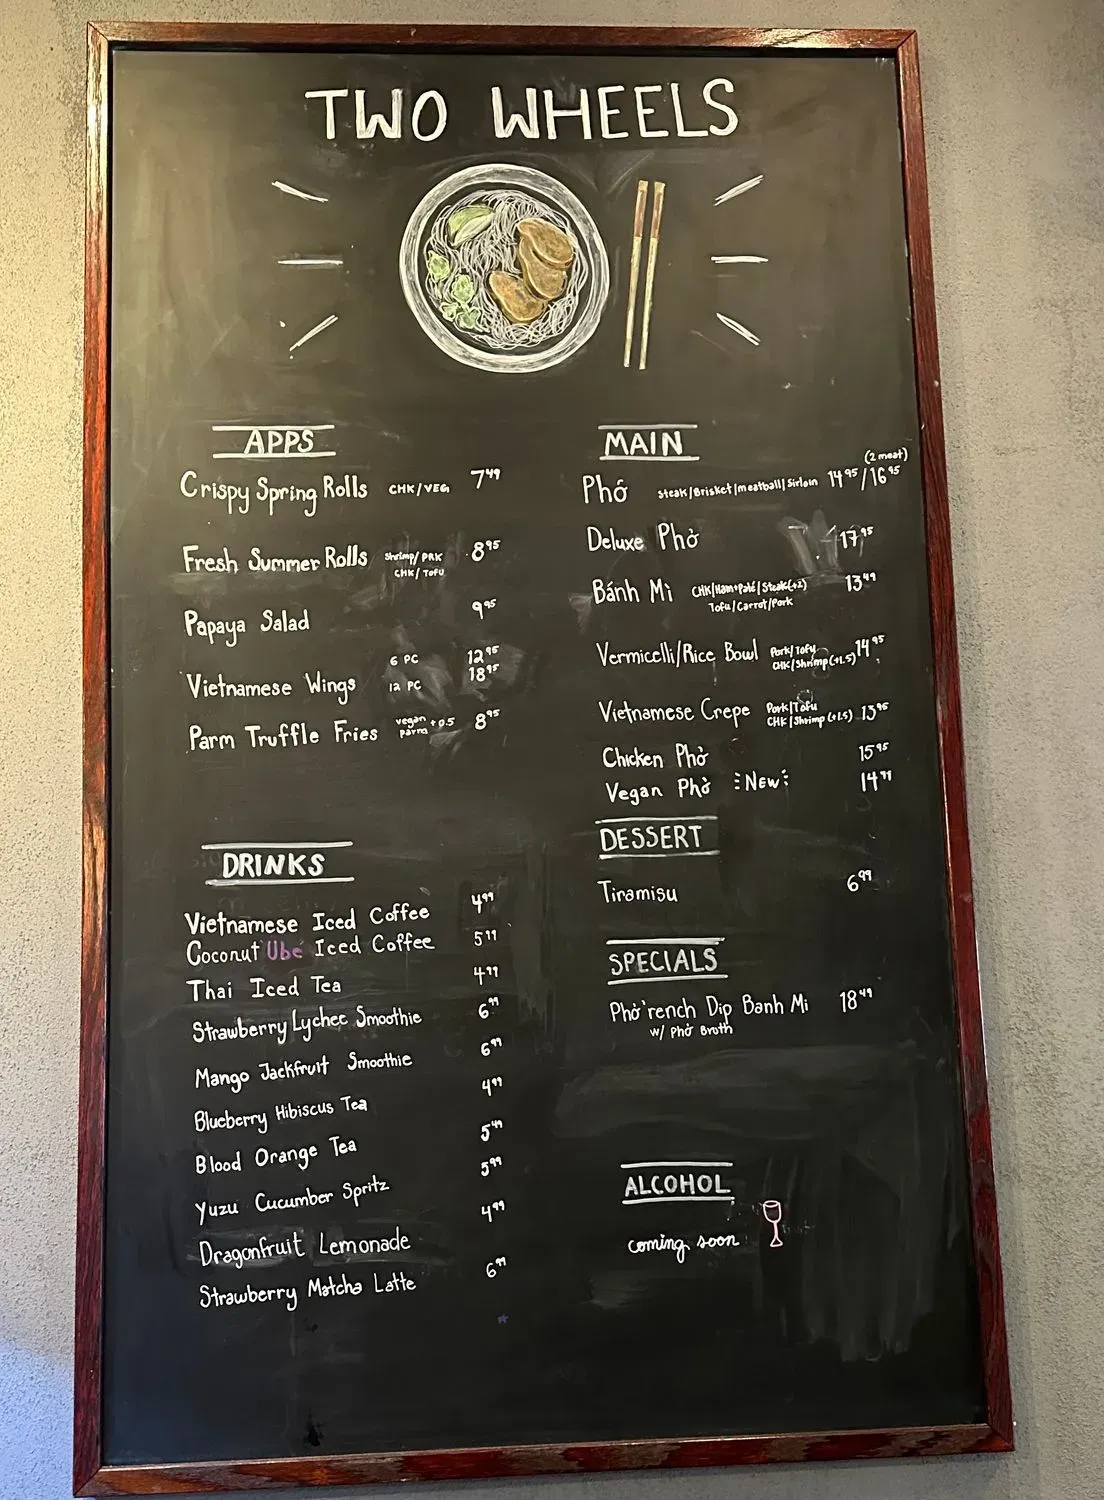 TWO WHEELS
APPS
Crispy Spring Rolls CHK/VEG 7.49
Fresh Summer Rolls Shrimp/PRK 8.95
CHK/TOFU
Papaya Salad 9.95
6 PC 12.95
Vietnamese Wings 12 PC 18.95
Parm Truffle Fries vegan parm +0.5 8.95
DRINKS
Vietnamese Iced Coffee 4.99
Coconut Ube Iced Coffee 5.99
Thai Iced Tea 4.99
Strawberry Lychee Smoothie 6.99
Mango Jackfruit Smoothie 6.99
Blueberry Hibiscus Tea 4.99
Blood Orange Tea 5.49
Yuzu Cucumber Spritz 5.99
Dragonfruit Lemonade 4.99
Strawberry Matcha Latte 6.99
MAIN
(2 meat)
Phở steak/Brisket/meatball/Sirloin 14.95/16.95
Deluxe Phở 17.95
Bánh Mì CHK/Ham+Paté/Steak(+2) 13.49
Tofu/Carrot/Pork
Vermicelli/Rice Bowl Pork/Tofu 14.95
CHK/Shrimp(+1.5)
Vietnamese Crepe Pork/Tofu 13.95
CHK/Shrimp(+1.5)
Chicken Phở 15.95
Vegan Phở NEW 14.99
DESSERT
Tiramisu 6.99
SPECIALS
Phở'rench Dip Banh Mi 18.49
w/ Phở Broth
ALCOHOL
coming soon